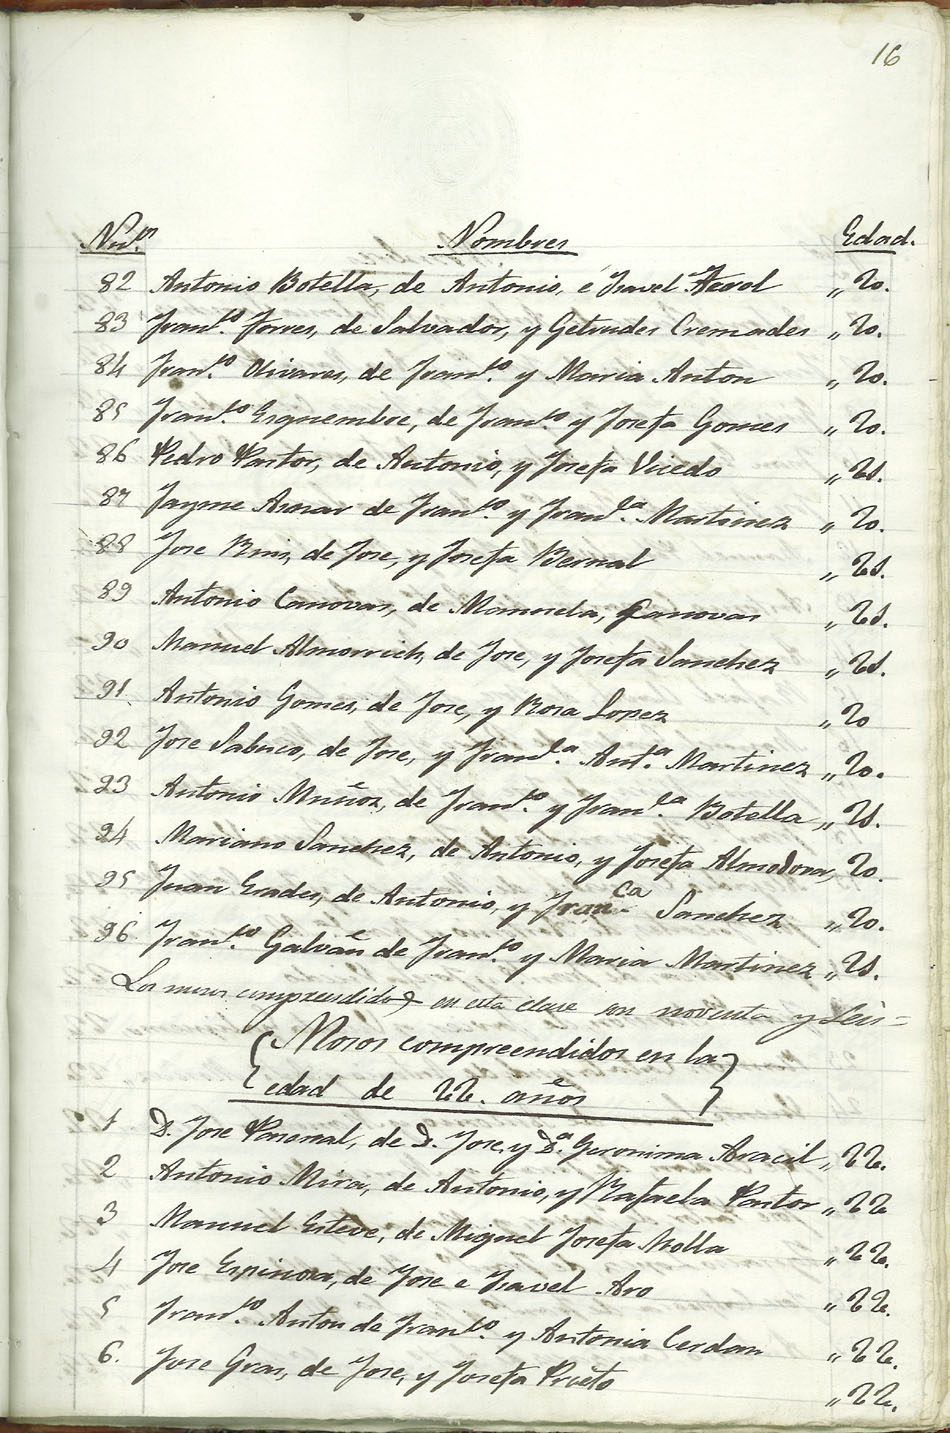 16
Num.s Nombres Edad.
82 Antonio Botella, de Antonio, é Isavel Ferol „ 20.
83 Fran.co Torres, de Salvador, y Getrudes Cremades „ 20.
84 Fran.co Olivares, de Fran.co y Maria Anton „ 20.
85 Fran.co Esquembre, de Fran.co y Josefa Gomes „ 20.
86 Pedro Pastor, de Antonio, y Josefa Vicedo „ 21.
87 Jayme Asnar de Fran.co y Fran.ca Martinez „ 20.
88 Jose de Jose, y Josefa Bernal „ 21.
89 Antonio Canovas, de Manuela, Canovas „ 21.
90 Manuel Almorrich, de Jose, y Josefa Sanchez „ 21.
91. Antonio Gomes, de Jose, y Rosa Lopez „ 20
92 Jose Sabuco, de Jose, y Fran.ca Ant.a Martinez „ 20.
93 Antonio Muñoz, de Fran.co y Fran.ca Botella „ 21.
94 Mariano Sanchez, de Antonio, y Josefa Almodova, 20.
95 Juan Erades, de Antonio, y Fran.ca Sanchez „ 20.
96 Fran.co Galvañ de Fran.co y Maria Martinez „ 21.
Los mosos comprendidos en esta clase son noventa y seis=
Mosos compreendidos en la
edad de 22. años
1 D. Jose Pascual, de D. Jose, y D.a Geronima Aracil „ 22.
2 Antonio Mira, de Antonio, y Rafaela Pastor „ 22
3 Manuel Esteve, de Miguel Josefa Molla „ 22.
4 Jose Espinosa, de Jose e Isavel Aro „ 22.
5 Fran.co Anton de Fran.co y Antonia Cerdan „ 22.
6. Jose Gras, de Jose, y Josefa Prieto „ 22.